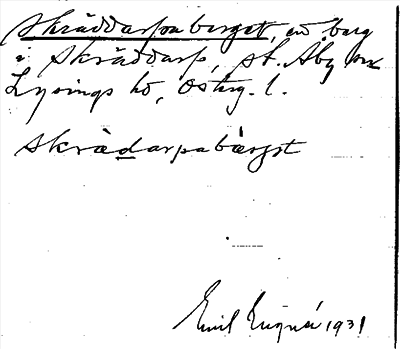 Skräddarpaberget, ett berg
i Skräddarp, St. Åby sn
Lysings hd, Österg. l.
skrädarpabärgst
Emil 1931